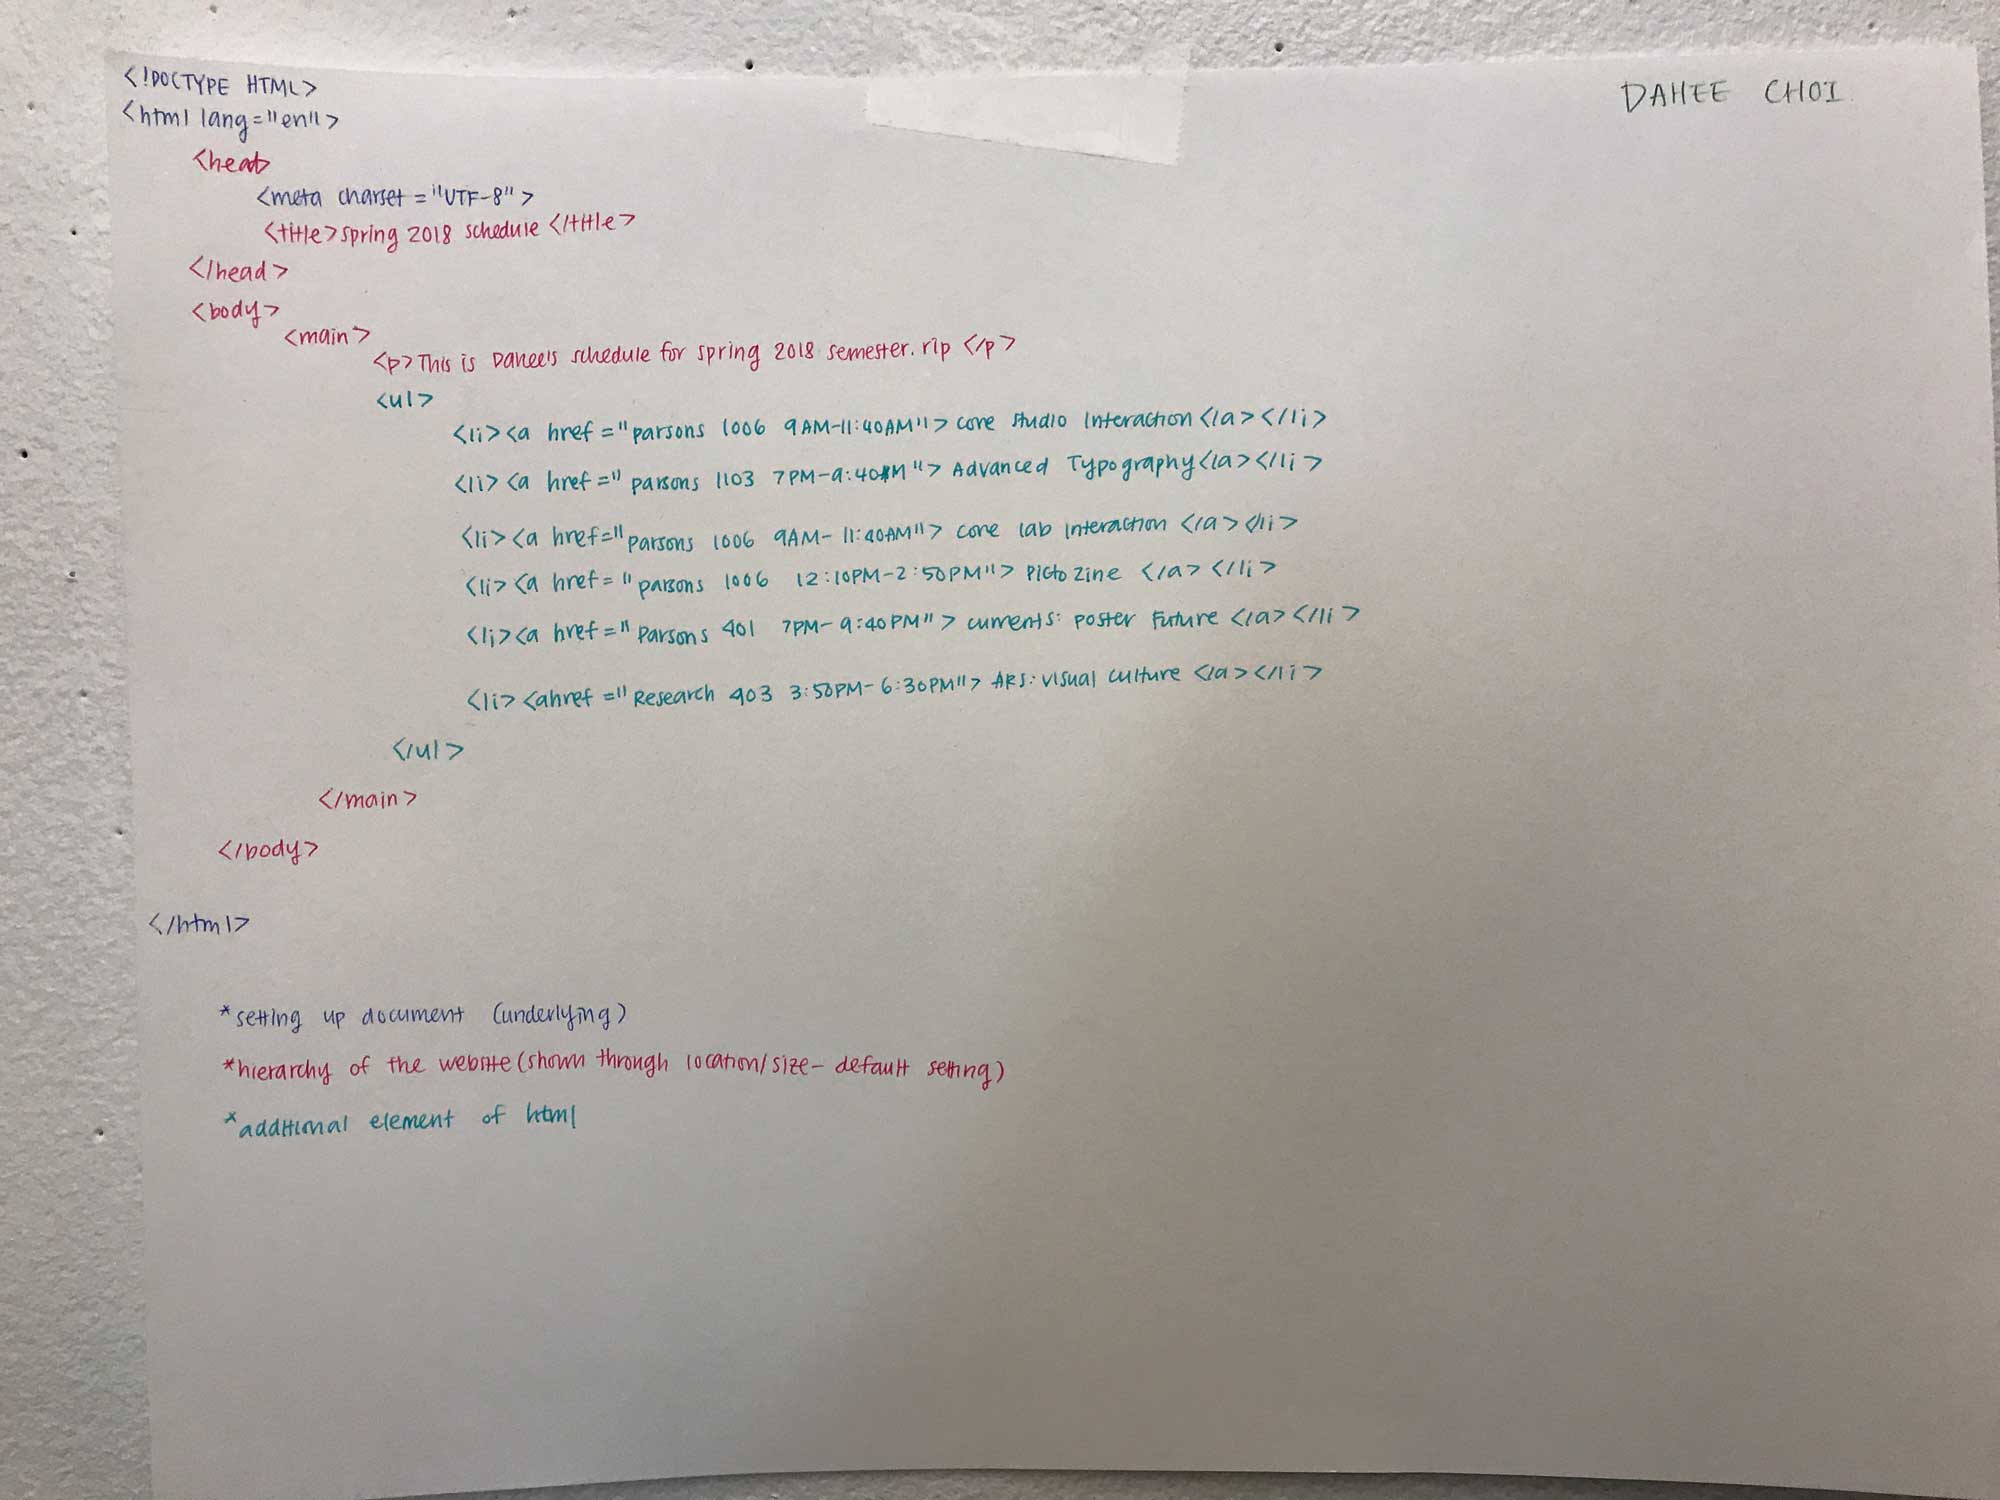 DAHEE CHOI
<!DOCTYPE HTML>
<html lang="en">
<head>
<meta charset="UTF-8">
<title>spring 2018 schedule </title>
</head>
<body>
<main>
<p>This is Dahee's schedule for spring 2018 semester. rip </p>
<ul>
<li><a href="parsons 1006 9AM-11:40AM"> core studio Interaction</a></li>
<li><a href="parsons 1103 7PM-9:40PM"> Advanced Typography</a></li>
<li><a href="parsons 1006 9AM-11:40AM"> core lab Interaction </a></li>
<li><a href="parsons 1006 12:10PM-2:50PM"> Picto Zine </a></li>
<li><a href="Parsons 401 7PM-9:40PM"> currents: poster Future </a></li>
<li><ahref="Research 903 3:50PM-6:30PM"> ARS: visual culture </a></li>
</ul>
</main>
</body>
</html>
*setting up document (underlying)
*hierarchy of the website (shown through location/size- default setting)
*additional element of html